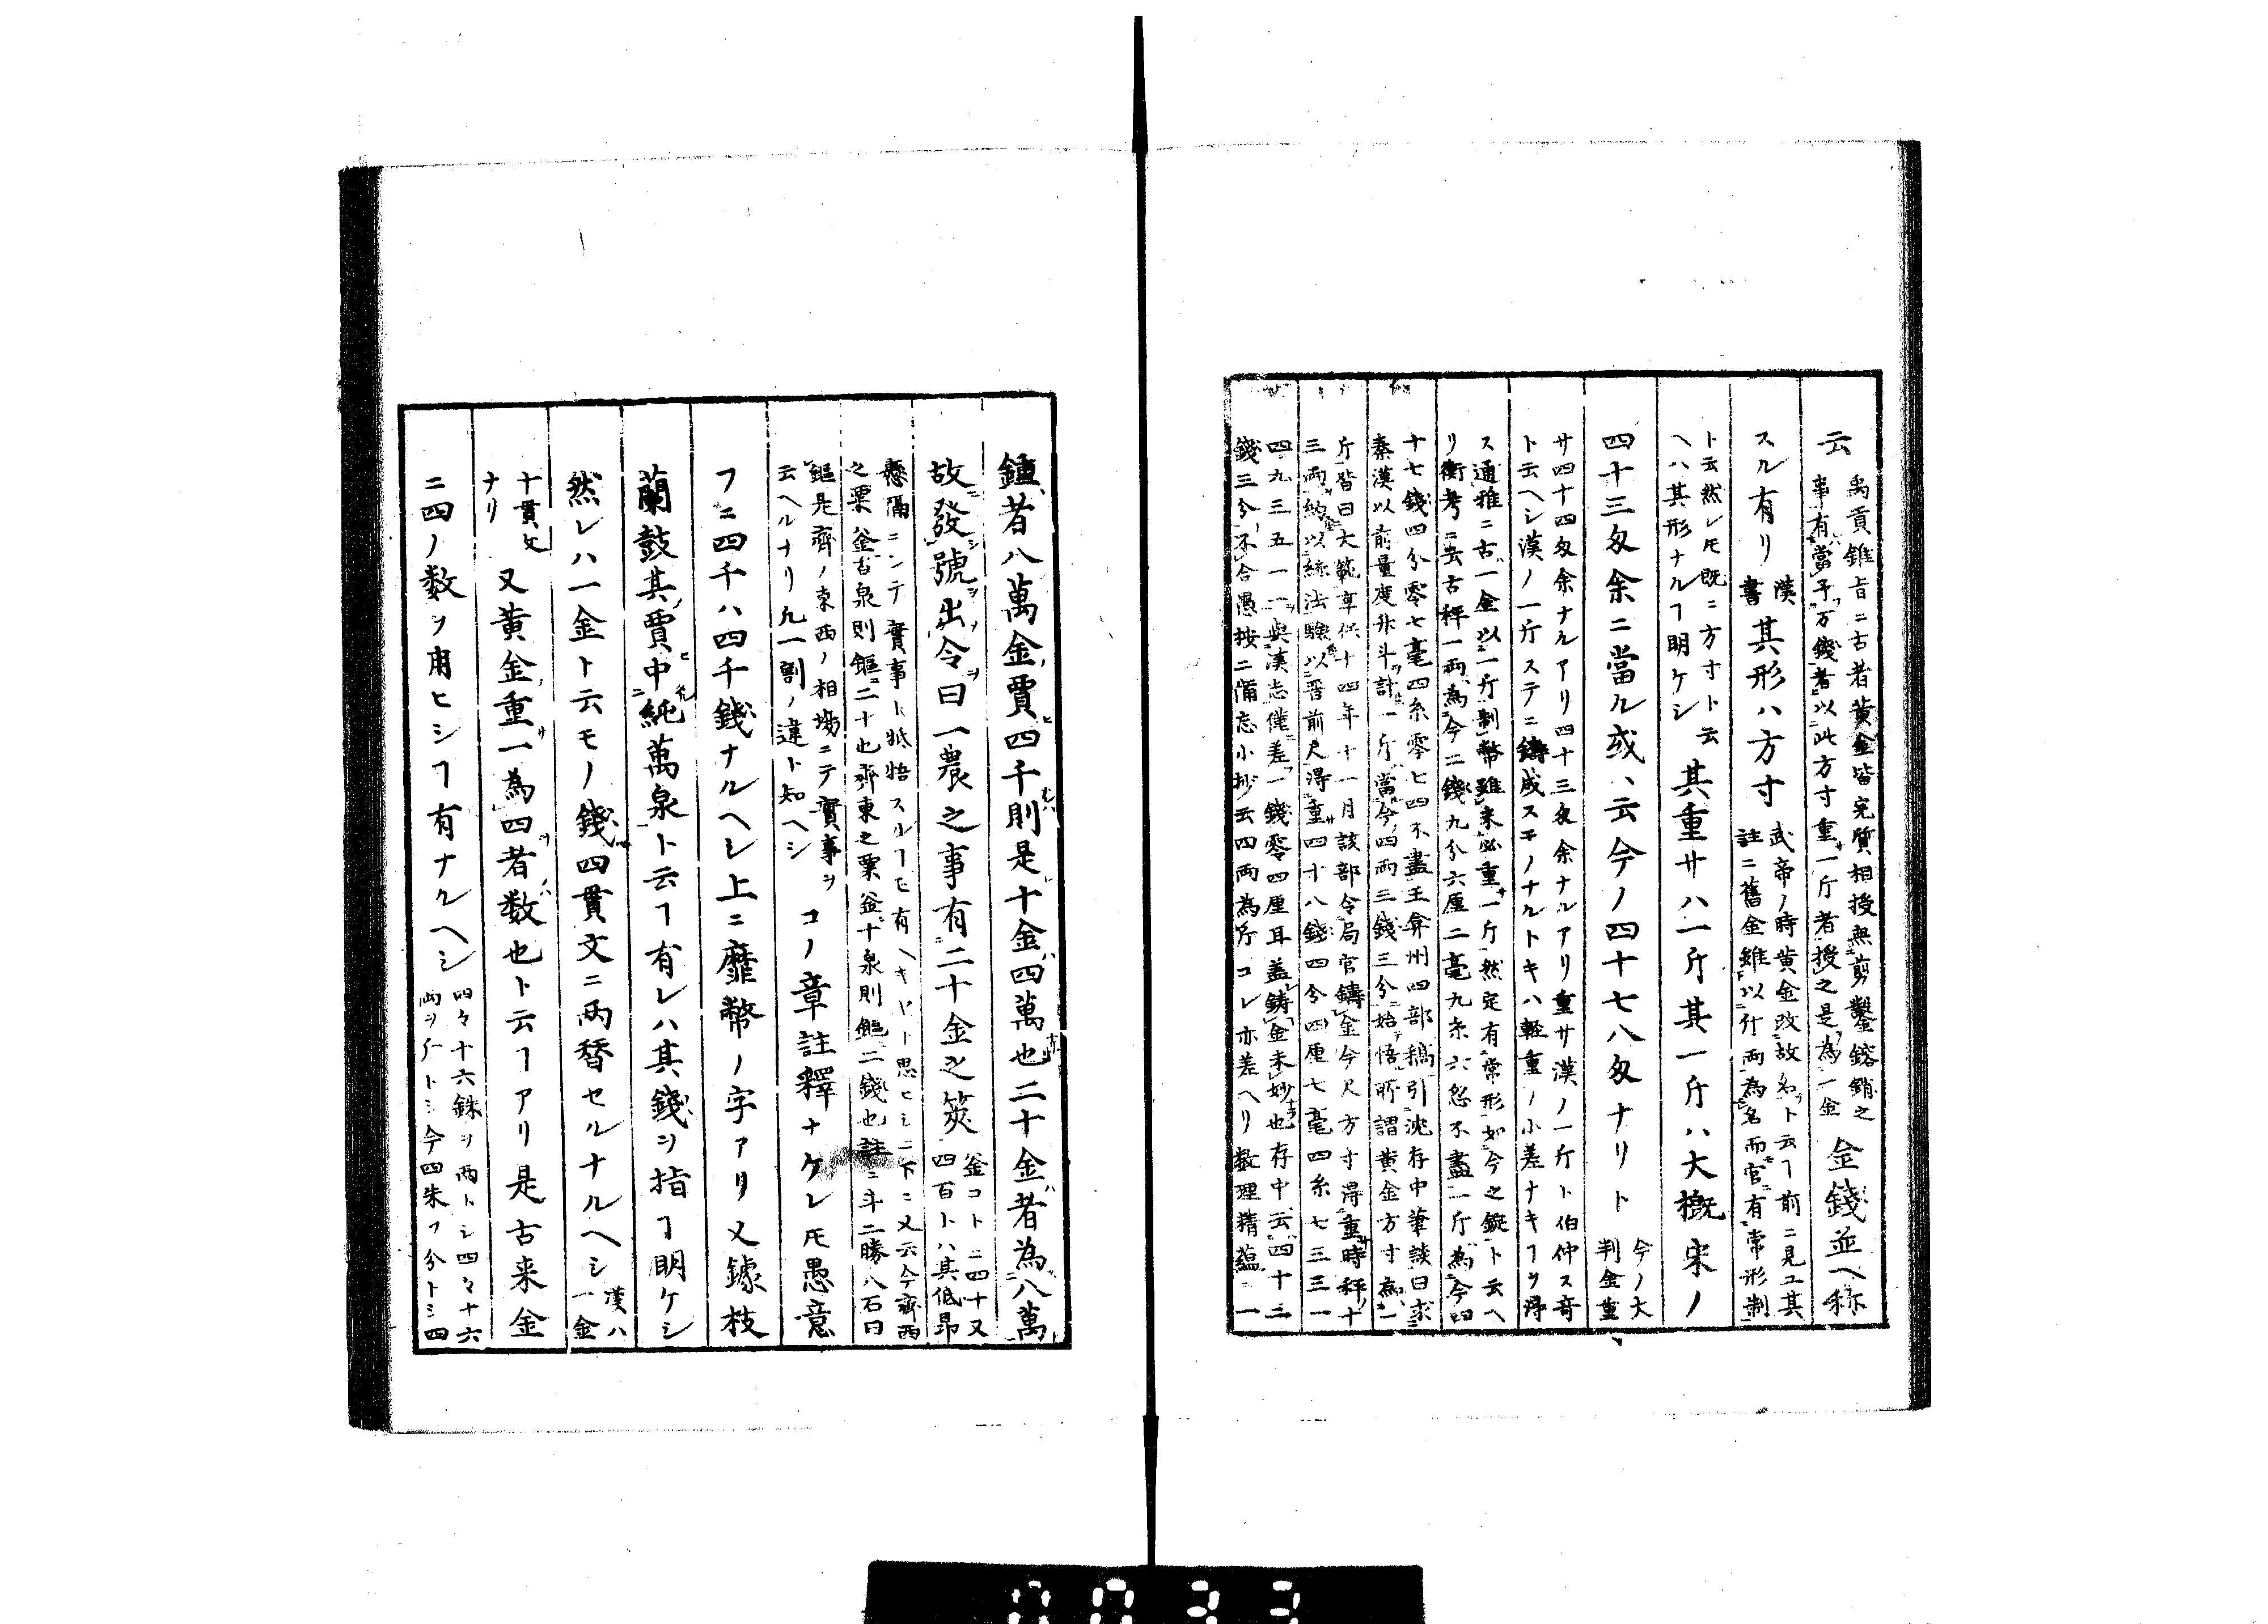 云
禹貢錐旨ニ古者黄金皆完質相授無剪鑿鎔銷之
事有當千万錢者以此方寸重一斤者授之是為一金
金錢並ヘ称
スル有リ
漢
書
其形ハ方寸
武帝ノ時黄金改故名ト云ヿ前ニ見ユ其
註ニ舊金雖以斤両為名而官有常形制
ト云然レ𪜈既ニ方寸ト云
ヘハ其形ナルヿ明ケシ
其重サハ一斤其一斤ハ大概宋ノ
四十三匁余ニ當ル或ハ云今ノ四十七八匁ナリト
今ノ大
判金重
サ四十四匁余ナルアリ四十三匁余ナルアリ重サ漢ノ一斤ト伯仲ス奇
ト云ヘシ漢ノ一斤ステニ鋳成スモノナルトキハ軽重ノ小差ナキヿヲ得
ス通雅ニ古一金以一斤制幣雖未必重一斤然定有常形如今之錠ト云ヘ
リ衡考ニ云古秤一両為今二錢九分六厘二毫九糸六忽不盡一斤為今四
十七錢四分零七毫四糸零七四不盡王弇州四部稿引沈存中筆談曰求
秦漢以前量度升斗計一斤當今四両三錢三分始悟所謂黄金方寸為一
斤皆曰大範享保十四年十一月該部令局官鑄金今尺方寸得重時秤十
三両納以絲法驗以晋前尺得重四十八錢四分四厘七毫四糸七三三一
四九三五一一與漢志僅差一錢零四厘耳盖鋳金未妙也存中云四十三
錢三分不合愚按ニ備忘小抄云四両為斤コレ亦差ヘリ数理精蘊一
鍾者八萬金賈四千則是十金四萬也二十金者為八萬
故發號出令曰一農之事有二十金之筴
釜コトニ四十又
四百トハ其低昂
懸隔ニシテ實事ト牴牾スルヿモ有ヘキヤト思ヒシニ下ニ又云今齊西
之粟釜百泉則鏂二十也齊東之粟釜十泉則鏂二錢也註ニ斗二勝八石曰
鏂是齊ノ東西ノ相場ニテ實事ヲ
云ヘルナリ九一割ノ違ト知ヘシ
コノ章註釋ナケレ𪜈愚意
フニ四千ハ四千錢ナルヘシ上ニ靡幣ノ字アリ又鐻枝
蘭鼓其賈中純萬泉ト云ヿ有レハ其錢ヲ指ヿ明ケシ
然レハ一金ト云モノ錢四貫文ニ両替セルナルヘシ
漢ハ
一金
十貫文
ナリ
又黄金重一為四者数也ト云ヿアリ是古来金
ニ四ノ数ヲ用ヒシヿ有ナルヘシ
四々十六銖ヲ両トシ四々十六
両ヲ斤トシ今四朱ヲ分トシ四